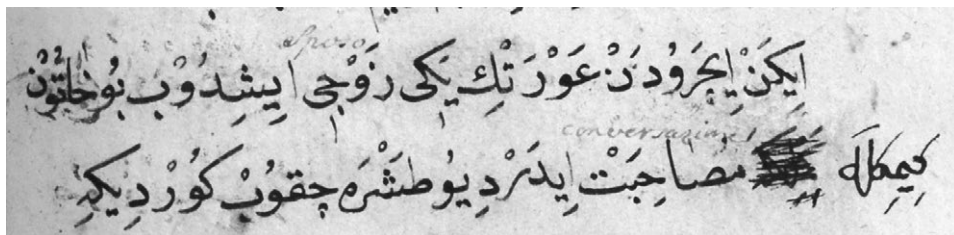 sposo
اِيكَنْ اِيچَرُودَنْ عَوْرَتْكِ يَكِى زَوْجِى اِيشِدُوْبْ بُو خَاتُوْنْ
conversazione
كِيمِكلَه مُصَاحِبَتْ اِيدَرْ دِيُو طَشْرَه چِقُوبْ كُورْدِيكِه